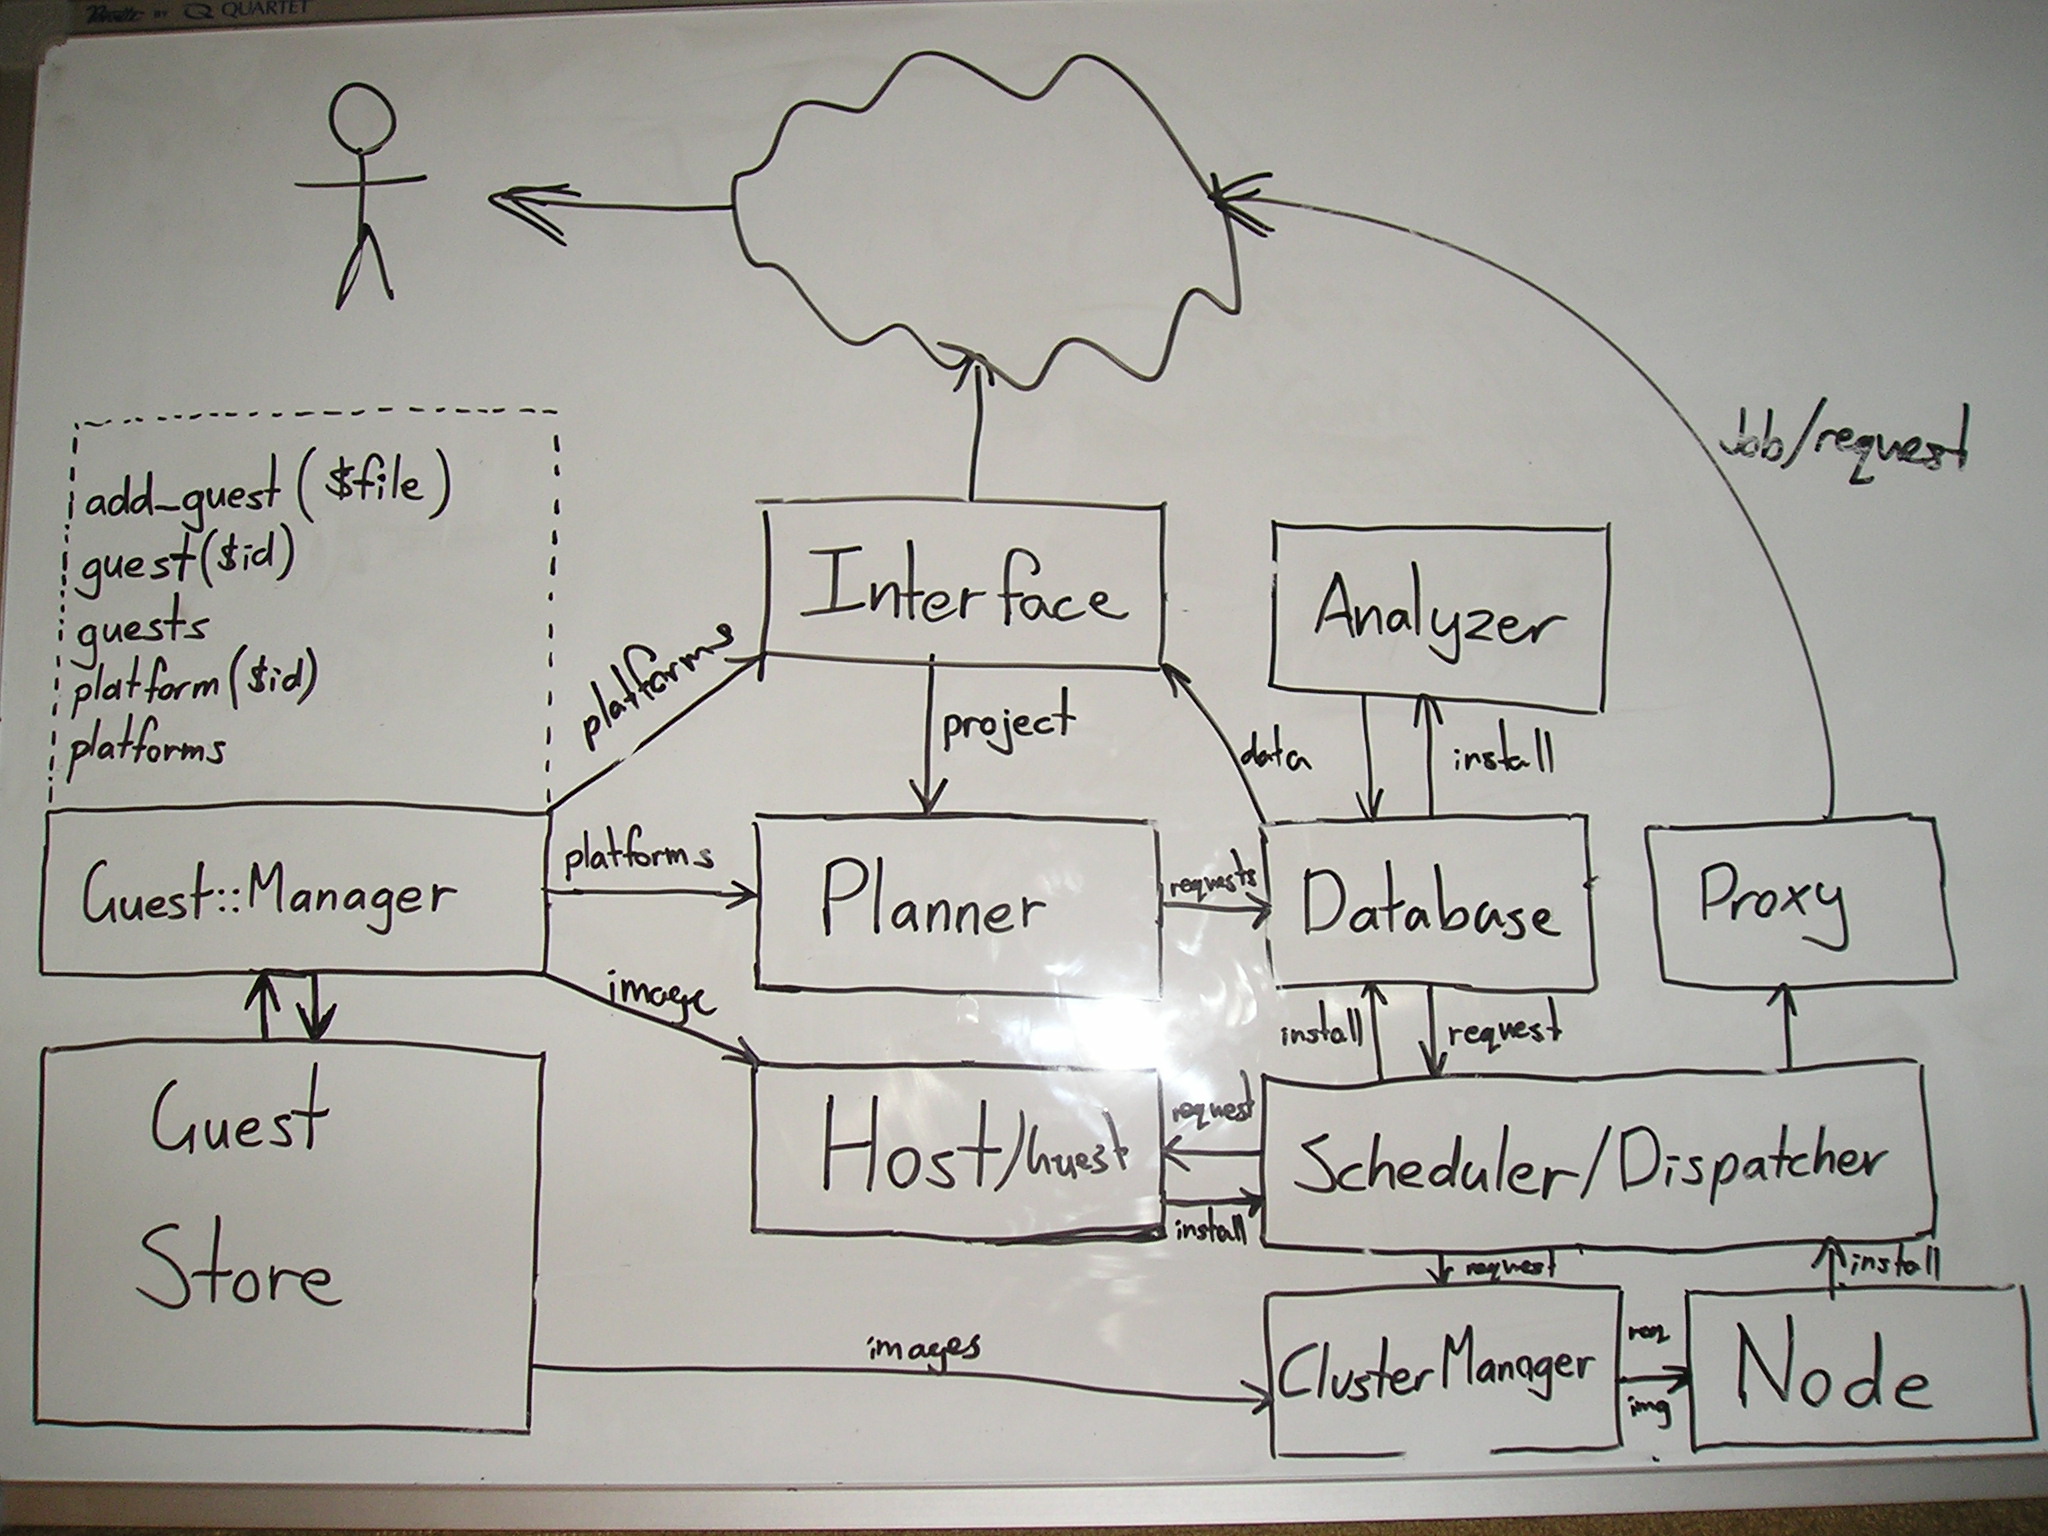 BY QUARTET
Job/request
add_guest($file)
guest($id)
guests
platform($id)
platforms
Interface
Analyzer
platforms
project
data
install
Guest::Manager
platforms
Planner
requests
Database
Proxy
image
install
request
Guest
Store
Host/Guest
request
install
Scheduler/Dispatcher
request
install
images
ClusterManager
req
img
Node